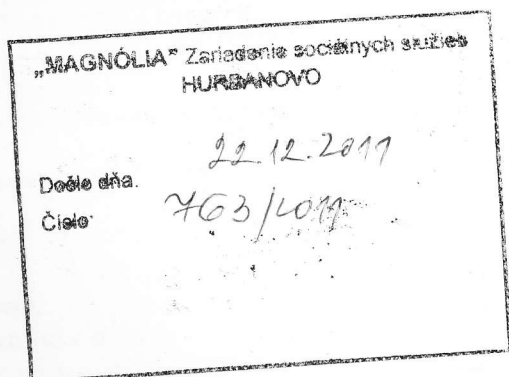 „MAGNÓLIA" Zariadenie sociálnych služieb
HURBANOVO
Došlo dňa. 22.12.2011
Číslo 763/2011